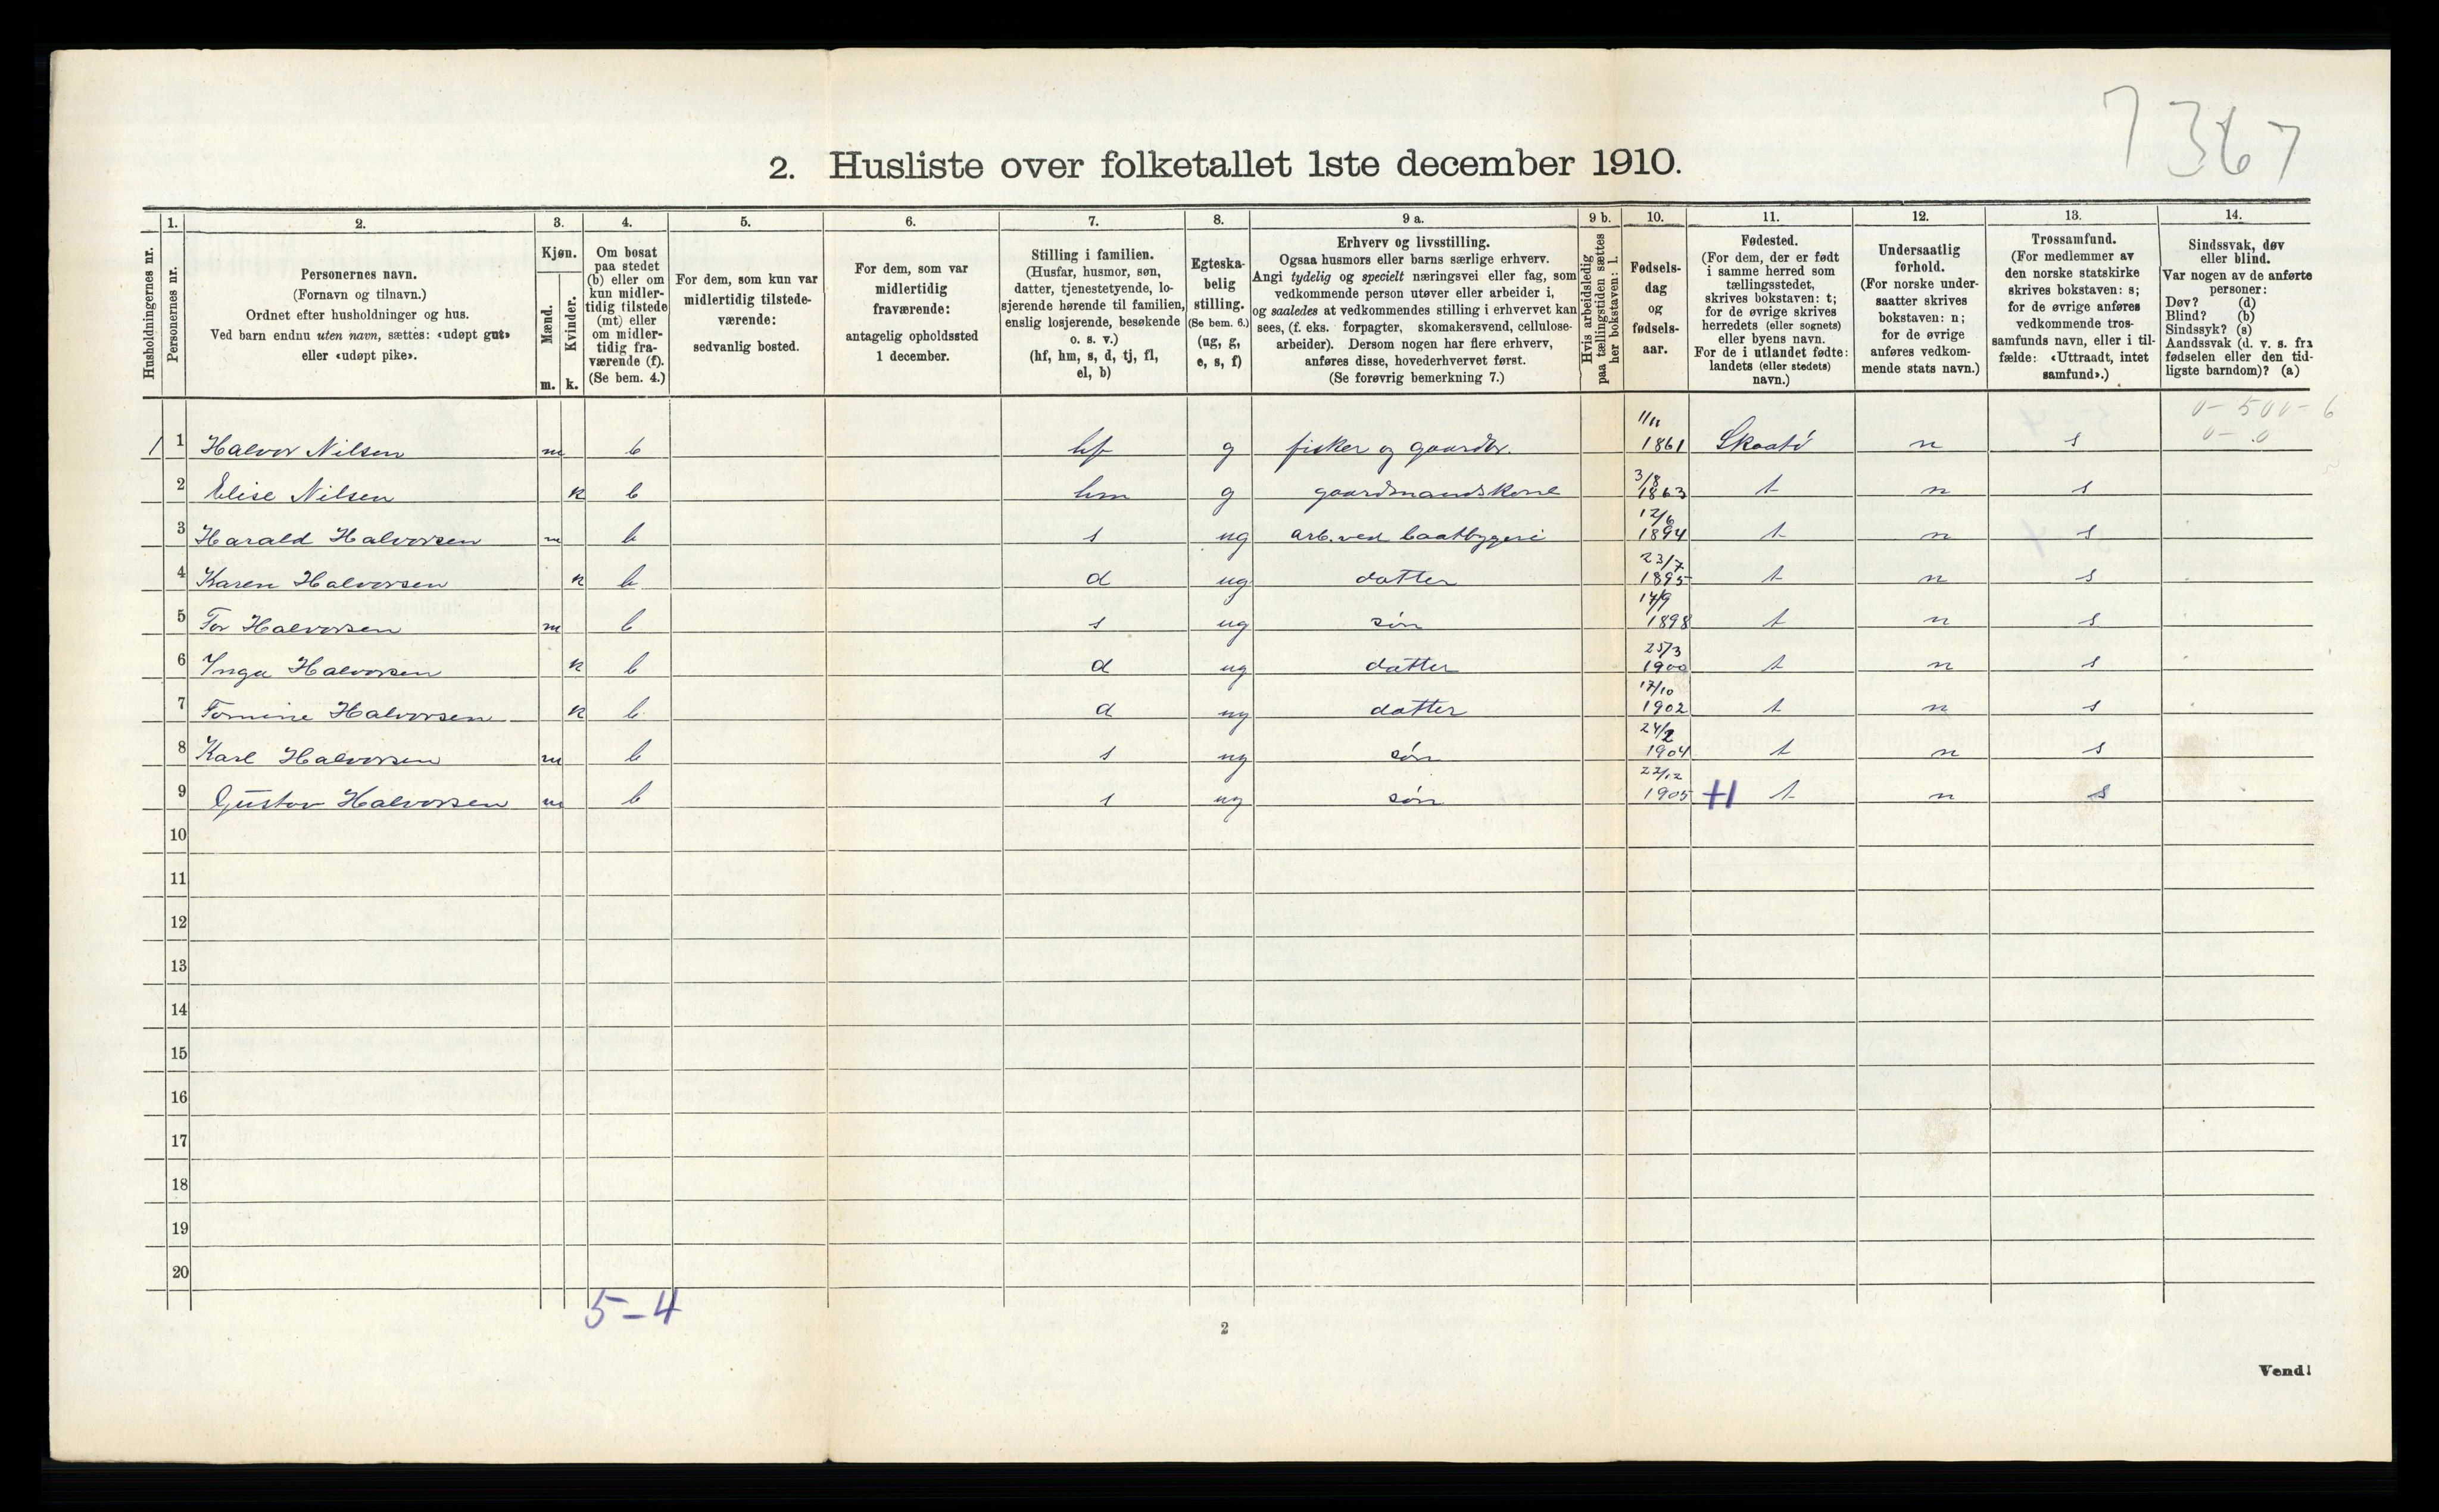 7367
2. Husliste over folketallet 1ste december 1910.
Husholdningernes nr.
1.
Personernes nr.
2.
Personernes navn.
(Fornavn og tilnavn.)
Ordnet efter husholdninger og hus.
Ved barn endnu uten navn, sættes: «udøpt gut»
eller «udøpt pike».
3.
Kjøn.
Mænd.
m.
Kvinder.
k.
4.
Om bosat
paa stedet
(b) eller om
kun midler-
tidig tilstede
(mt) eller
om midler-
tidig fra-
værende (f).
(Se bem. 4.)
5.
For dem, som kun var
midlertidig tilstede-
værende:
sedvanlig bosted.
6.
For dem, som var
midlertidig
fraværende:
antagelig opholdssted
1 december.
7.
Stilling i familien.
(Husfar, husmor, søn,
datter, tjenestetyende, lo-
sjerende hørende til familien,
enslig losjerende, besøkende
o. s. v.)
(hf, hm, s, d, tj, fl,
el, b)
8.
Egteska-
belig
stilling.
(Se bem. 6.)
(ug, g,
e, s, f)
9 a.
Erhverv og livsstilling.
Ogsaa husmors eller barns særlige erhverv.
Angi tydelig og specielt næringsvei eller fag, som
vedkommende person utøver eller arbeider i,
og saaledes at vedkommendes stilling i erhvervet kan
sees, (f. eks. forpagter, skomakersvend, cellulose-
arbeider). Dersom nogen har flere erhverv,
anføres disse, hovederhvervet først.
(Se forøvrig bemerkning 7.)
9 b.
Hvis arbeidsledig
paa tællingstiden sættes
her bokstaven: l.
10.
Fødsels-
dag
og
fødsels-
aar.
11.
Fødested.
(For dem, der er født
i samme herred som
tællingsstedet,
skrives bokstaven: t;
for de øvrige skrives
herredets (eller sognets)
eller byens navn.
For de i utlandet fødte:
landets (eller stedets)
navn.)
12.
Undersaatlig
forhold.
(For norske under-
saatter skrives
bokstaven: n;
for de øvrige
anføres vedkom-
mende stats navn.)
13.
Trossamfund.
(For medlemmer av
den norske statskirke
skrives bokstaven: s;
for de øvrige anføres
vedkommende tros-
samfunds navn, eller i til-
fælde: «Uttraadt, intet
samfund».)
14.
Sindssvak, døv
eller blind.
Var nogen av de anførte
personer:
Døv? (d)
Blind? (b)
Sindssyk? (s)
Aandssvak (d. v. s. fra
fødselen eller den tid-
ligste barndom)? (a)
1 1 Halvor Nilsen m b hf g fisker og gaardbr. 11/11 1861 Skaatö n s
2 Elise Nilsen k b hm g gaardmandskone 3/8 1863 t n s
3 Harald Halvorsen m b s ug arb. ved baatbyggeri 12/6 1894 t n s
4 Karen Halvorsen k b d ug datter 23/7 1895 t n s
5 Tor Halvorsen m b s ug søn 17/9 1898 t n s
6 Inga Halvorsen k b d ug datter 25/3 1900 t n s
7 Tomine Halvorsen k b d ug datter 17/10 1902 t n s
8 Karl Halvorsen m b s ug søn 24/2 1904 t n s
9 Gustav Halvorsen m b s ug søn 22/12 1905 t n s
10
11
12
13
14
15
16
17
18
19
20
5-4
2
Vend!